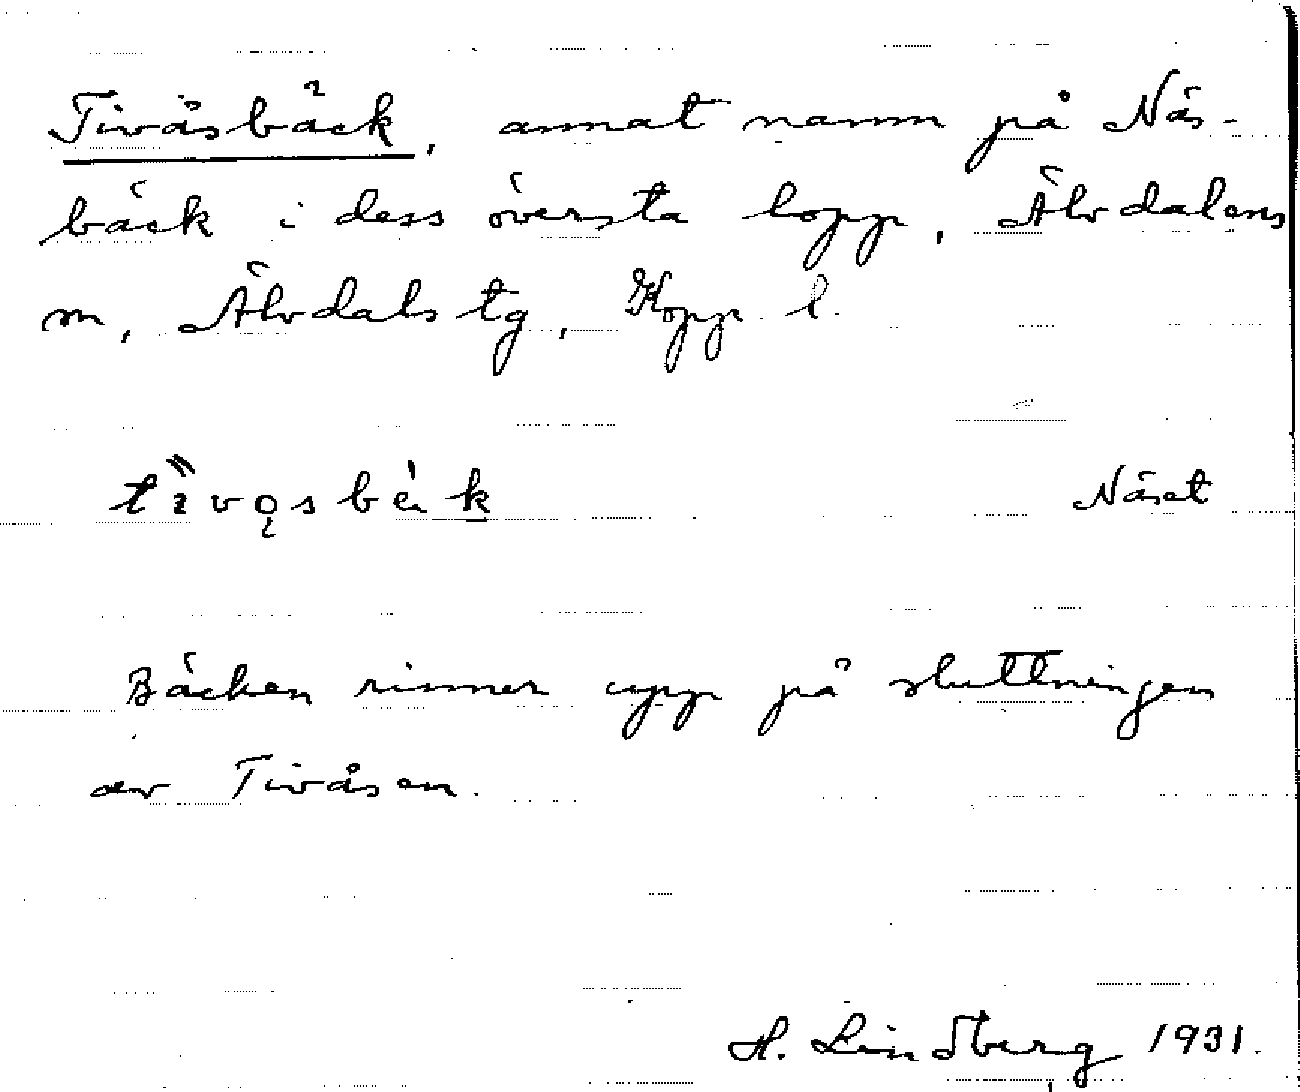 Tivåsbäck, annat namn på Näs-
bäck i dess översta lopp, Älvdalens
sn, Älvdals tg, Kopp l.
Näset
Bäcken rinner upp på sluttningen
av Tivåsen.
H. Lindberg 1931.